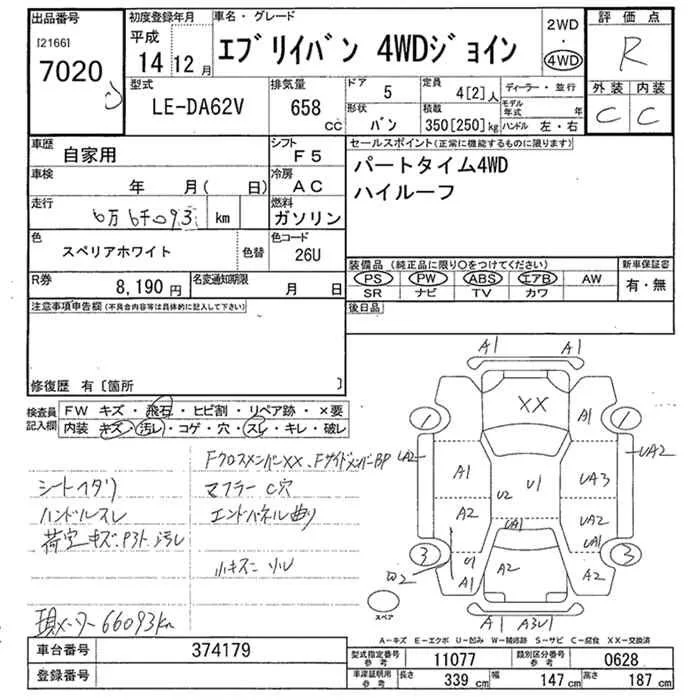 出品番号
[2166]
7020
初度登録年月
平成
14 12 月
車名・グレード
エブリイバン 4WDジョイン
2WD
・
4WD
評価点
R
外装 内装
C C
型式
LE-DA62V
排気量
658 CC
ドア
5
定員
4[2]人
形状
バン
積載
350[250]kg
ディーラー・並行
モデル年式 年
ハンドル 左・右
車歴
自家用
シフト
F5
車検
年 月( 日)
冷房
AC
走行
6万6千093 km
燃料
ガソリン
色
スペリアホワイト
色替
色コード
26U
R券
8,190 円
名変通知期限
月 日
セールスポイント(正常に機能するものに限ります)
パートタイム4WD
ハイルーフ
装備品 (純正品に限り〇をつけてください)
PS PW ABS エアB AW
SR ナビ TV カワ
新車保証書
有・無
後日品
注意事項申告欄(不具合内容等は具体的に記入して下さい)
修復歴 有〔箇所 〕
検査員記入欄
FW キズ・飛石・ヒビ割・リペア跡・×要
内装 キズ・汚レ・コゲ・穴・スレ・キレ・破レ
FクロスメンバーXX、FサイドメンバーBP
シートイタリ
マフラーC穴
ハンドルスレ
エンドパネル曲り
荷室キズ、P3ト、汚レ
小キズニ
現メーター 66093km
A1 A1
XX
1 1
A1
UA2 UA2
A1 U2 U1 UA3
A2 UA1 UA2
UA1
3 3
U1
A1
A2 A2
W2
スペア
A1 A3U1
A-キズ E-エクボ U-凹み W-補修跡 S-サビ C-腐食 XX-交換済
車台番号
374179
登録番号
型式指定番号 参考
11077
類別区分番号 参考
0628
車庫証明用 参考
長さ 339 cm 幅 147 cm 高さ 187 cm